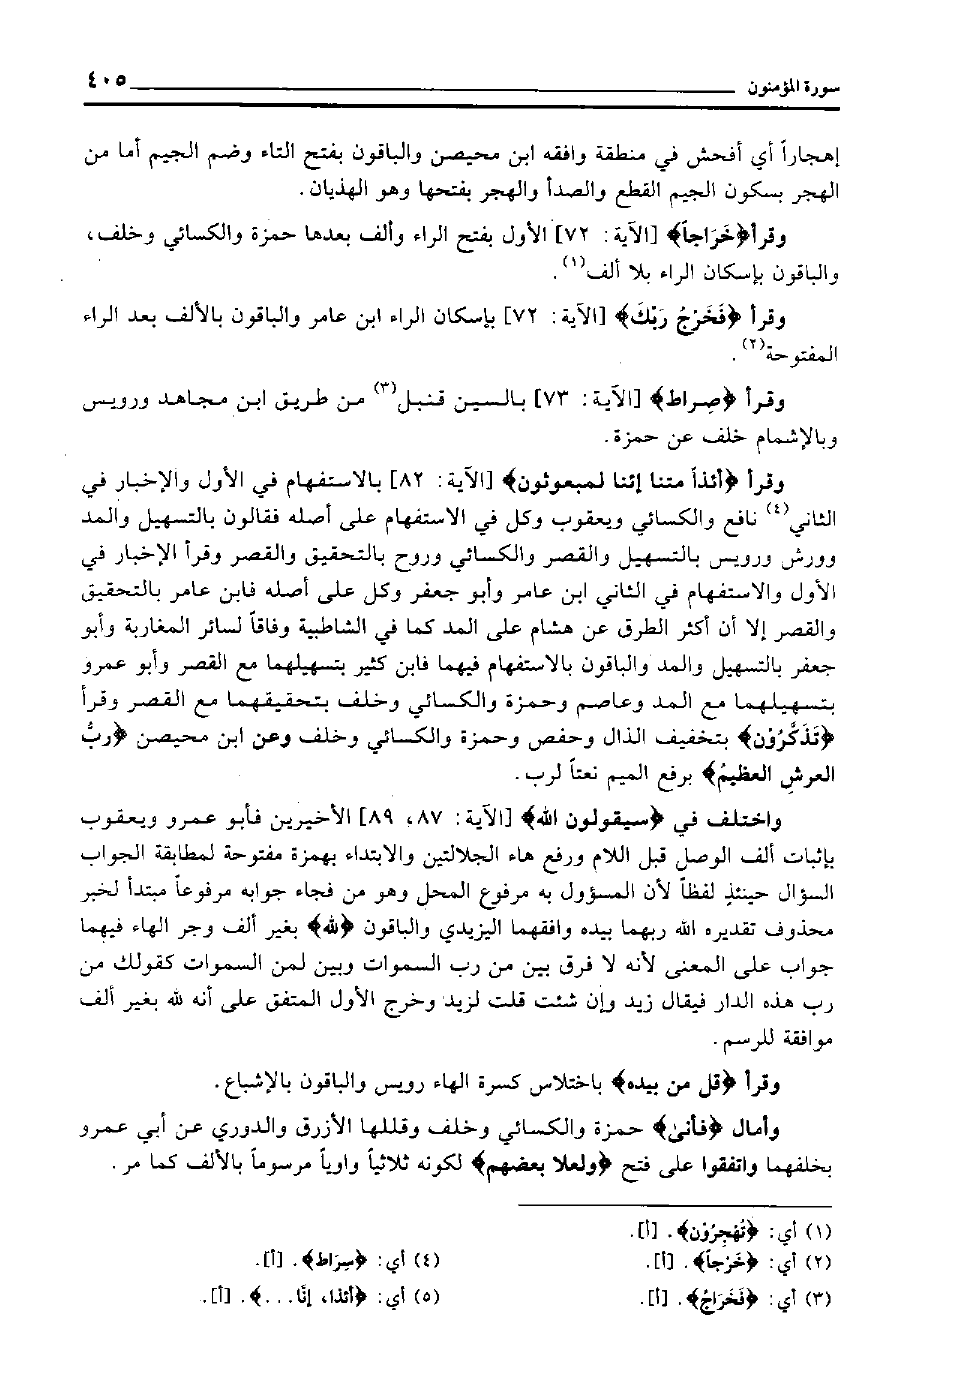 سورة المؤمنون ٤٠٥
إهجاراً أي أفحش في منطقة وافقه ابن محيصن والباقون بفتح التاء وضم الجيم أما من
الهجر بسكون الجيم القطع والصدأ والهجر بفتحها وهو الهذيان.
وقرأ﴿خَرَاجاً﴾ [الآية: ٧٢] الأول بفتح الراء وألف بعدها حمزة والكسائي وخلف،
والباقون بإسكان الراء بلا ألف(١).
وقرأ ﴿فَخَرْجُ رَبِّكَ﴾ [الآية: ٧٢] بإسكان الراء ابن عامر والباقون بالألف بعد الراء
المفتوحة(٢).
وقرأ ﴿صِراط﴾ [الآية: ٧٣] بالسين قنبل(٣) من طريق ابن مجاهد ورويس
وبالإشمام خلف عن حمزة.
وقرأ ﴿أئذاً متنا إئنا لمبعوثون﴾ [الآية: ٨٢] بالاستفهام في الأول والإخبار في
الثاني(٤) نافع والكسائي ويعقوب وكل في الاستفهام على أصله فقالون بالتسهيل والمد
وورش ورويس بالتسهيل والقصر والكسائي وروح بالتحقيق والقصر وقرأ الإخبار في
الأول والاستفهام في الثاني ابن عامر وأبو جعفر وكل على أصله فابن عامر بالتحقيق
والقصر إلا أن أكثر الطرق عن هشام على المد كما في الشاطبية وفاقاً لسائر المغاربة وأبو
جعفر بالتسهيل والمد والباقون بالاستفهام فيهما فابن كثير بتسهيلهما مع القصر وأبو عمرو
بتسهيلهما مع المد وعاصم وحمزة والكسائي وخلف بتحقيقهما مع القصر وقرأ
﴿تَذَكَّرُوْن﴾ بتخفيف الذال وحفص وحمزة والكسائي وخلف وعن ابن محيصن ﴿ربُّ
العرشِ العظيمُ﴾ برفع الميم نعتاً لرب.
واختلف في ﴿سيقولون الله﴾ [الآية: ٨٧، ٨٩] الأخيرين فأبو عمرو ويعقوب
بإثبات ألف الوصل قبل اللام ورفع هاء الجلالتين والابتداء بهمزة مفتوحة لمطابقة الجواب
السؤال حينئذٍ لفظاً لأن المسؤول به مرفوع المحل وهو من فجاء جوابه مرفوعاً مبتدأ لخبر
محذوف تقديره الله ربهما بيده وافقهما اليزيدي والباقون ﴿لله﴾ بغير ألف وجر الهاء فيهما
جواب على المعنى لأنه لا فرق بين من رب السموات وبين لمن السموات كقولك من
رب هذه الدار فيقال زيد وإن شئت قلت لزيد وخرج الأول المتفق على أنه لله بغير ألف
موافقة للرسم.
وقرأ ﴿قل من بيده﴾ باختلاس كسرة الهاء رويس والباقون بالإشباع.
وأمال ﴿فأنىٰ﴾ حمزة والكسائي وخلف وقللها الأزرق والدوري عن أبي عمرو
بخلفهما واتفقوا على فتح ﴿ولعلا بعضهم﴾ لكونه ثلاثياً واوياً مرسوماً بالألف كما مر.
(١) أي: ﴿تُهْجِرُوْن﴾. [أ].
(٢) أي: ﴿خَرْجاً﴾. [أ].
(٣) أي: ﴿فَخَرَاجُ﴾. [أ].
(٤) أي: ﴿سِرَاط﴾. [أ].
(٥) أي: ﴿أئذا، إنَّا...﴾. [أ].